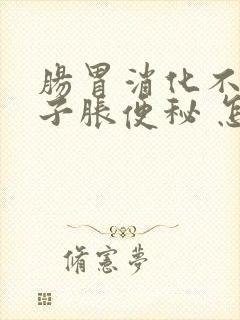 腸胃消化不
子脹便秘 怎
脩憲夢